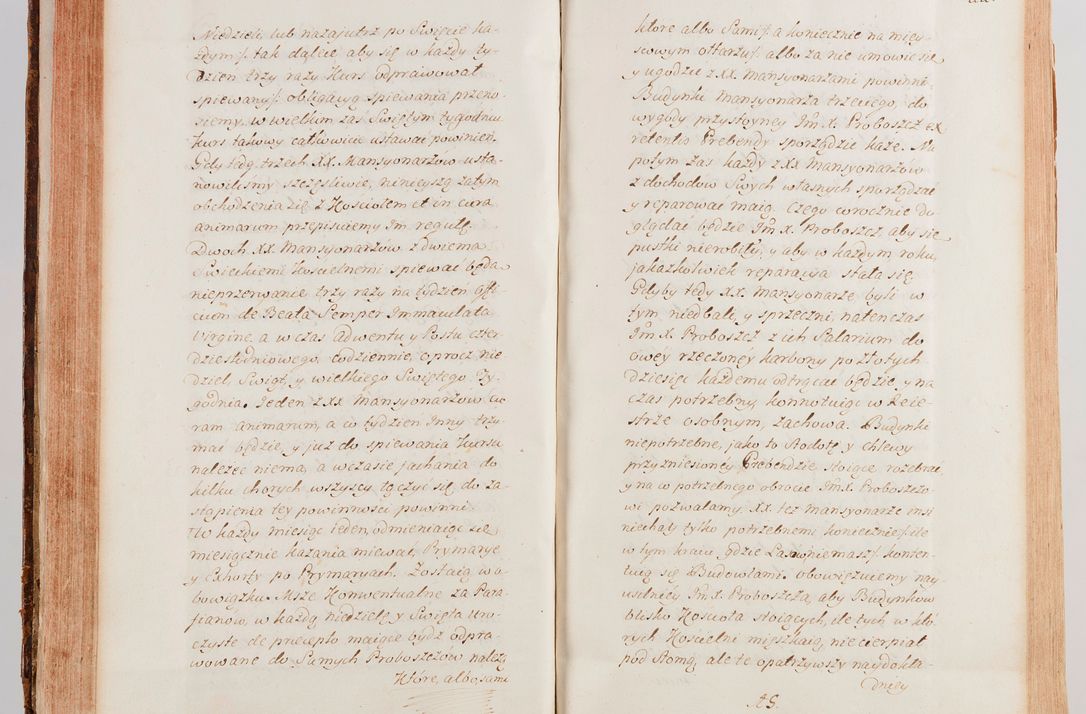 Niedzieli lub nazajutrz po Swięcie ka-
żdym/: tak dalece aby się w każdy ty-
dzien trzy razy Kurs odprawował
spiewany/: obligacyą spiewania przeno-
siemy, w wielkim zas Swiętym tygodniu
Kurs takowy całkowicie ustawac powinien.
Gdy tedy trzech XX. Mansyonarzow usta-
nowilismy szczęsliwie, ninieyszą zatym
obchodzenia się z Kosciołem et in cura
animarum przepisuiemy Im. regułę.
Dwoch XX. Mansyonarzow z dwiema
Swieckiemi Koscielnemi spiewac będą
nieprzerwanie trzy razy na tydzien offi-
cium de Beata Semper Immaculata
Virgine, a w czas Adwentu, y Postu czter
dziestodniowego codziennie, oprocz nie-
dziel, Swiąt, y wielkiego Swiętego Ty-
godnia. Jeden z XX Mansyonarzow cu-
ram animarum, a co tydzien Inny trzy-
mac będzie, y już do spiewania Kursu
należec niema, a wczasie jachania do
kilku chorych wszyscy łączyc się do za-
stąpienia tey powinnosci powinni.
Co każdy miesiąc ieden, odmieniaiąc się
miesięcznie kazania miewac, Prymarye
y Exhorty po Prymaryach. Zostaią w o-
bowiązku. Msze Konwentualne za Para-
fianow, w każdą niedzielę y Swięta uro-
czyste de præcepto maiące bydź odpra-
wowane do Samych Proboszczow należą
Które, albo sami
ktore albo Sami/: a koniecznie na miey-
scowym ołtarzu/: albo za nie umowic się
y ugodzic z XX. Mansyonarzami powinni.
Budynki Mansyonarza trzeciego, do
wygody przystoyney Im X. Proboszcz ex
retentio Prebendy sporządzic każe. Na
potym zas każdy z XX Mansyonarzow
z dochodow Swych własnych sporządzac
y reparowac maią. Czego corocznie do-
glądac będzie Im X. Proboszcz, aby się
pustki nierobiły, y aby w każdym roku,
jakażkolwiek reparacya stała się.
Gdyby tedy XX. Mansyonarze byli w
tym niedbali, y sprzeczni, natenczas
Im X. Proboszcz z ich Salarium do
owey rzeczoney karbony po złotych
dziesięc każdemu odtrącac będzie, y na
czas potrzebny, konnotuiąc w Reie-
strze osobnym, zachowa. Budynki
niepotrzebne, jako to Stodołę y chlewy
przy zniesioney Prebendzie stoiące rozebrac
y na co potrzebnego obrocic Im X. Proboszczo-
wi pozwalamy. XX. też Mansyonarze insi
niechay tylko potrzebnemi koniecznie/: ile
w tym kraiu, gdzie Lasow niemasz/: konten-
tuią się Budowlami. obowięzuiemy nay-
usilniey Im X. Proboszcza, aby Budynkow
blisko Koscioła stoiących, ile tych, w kto-
rych Koscielni mięszkaią, niecierpiał
pod Słomą, ale te opatrzywszy naydokła-
dniey